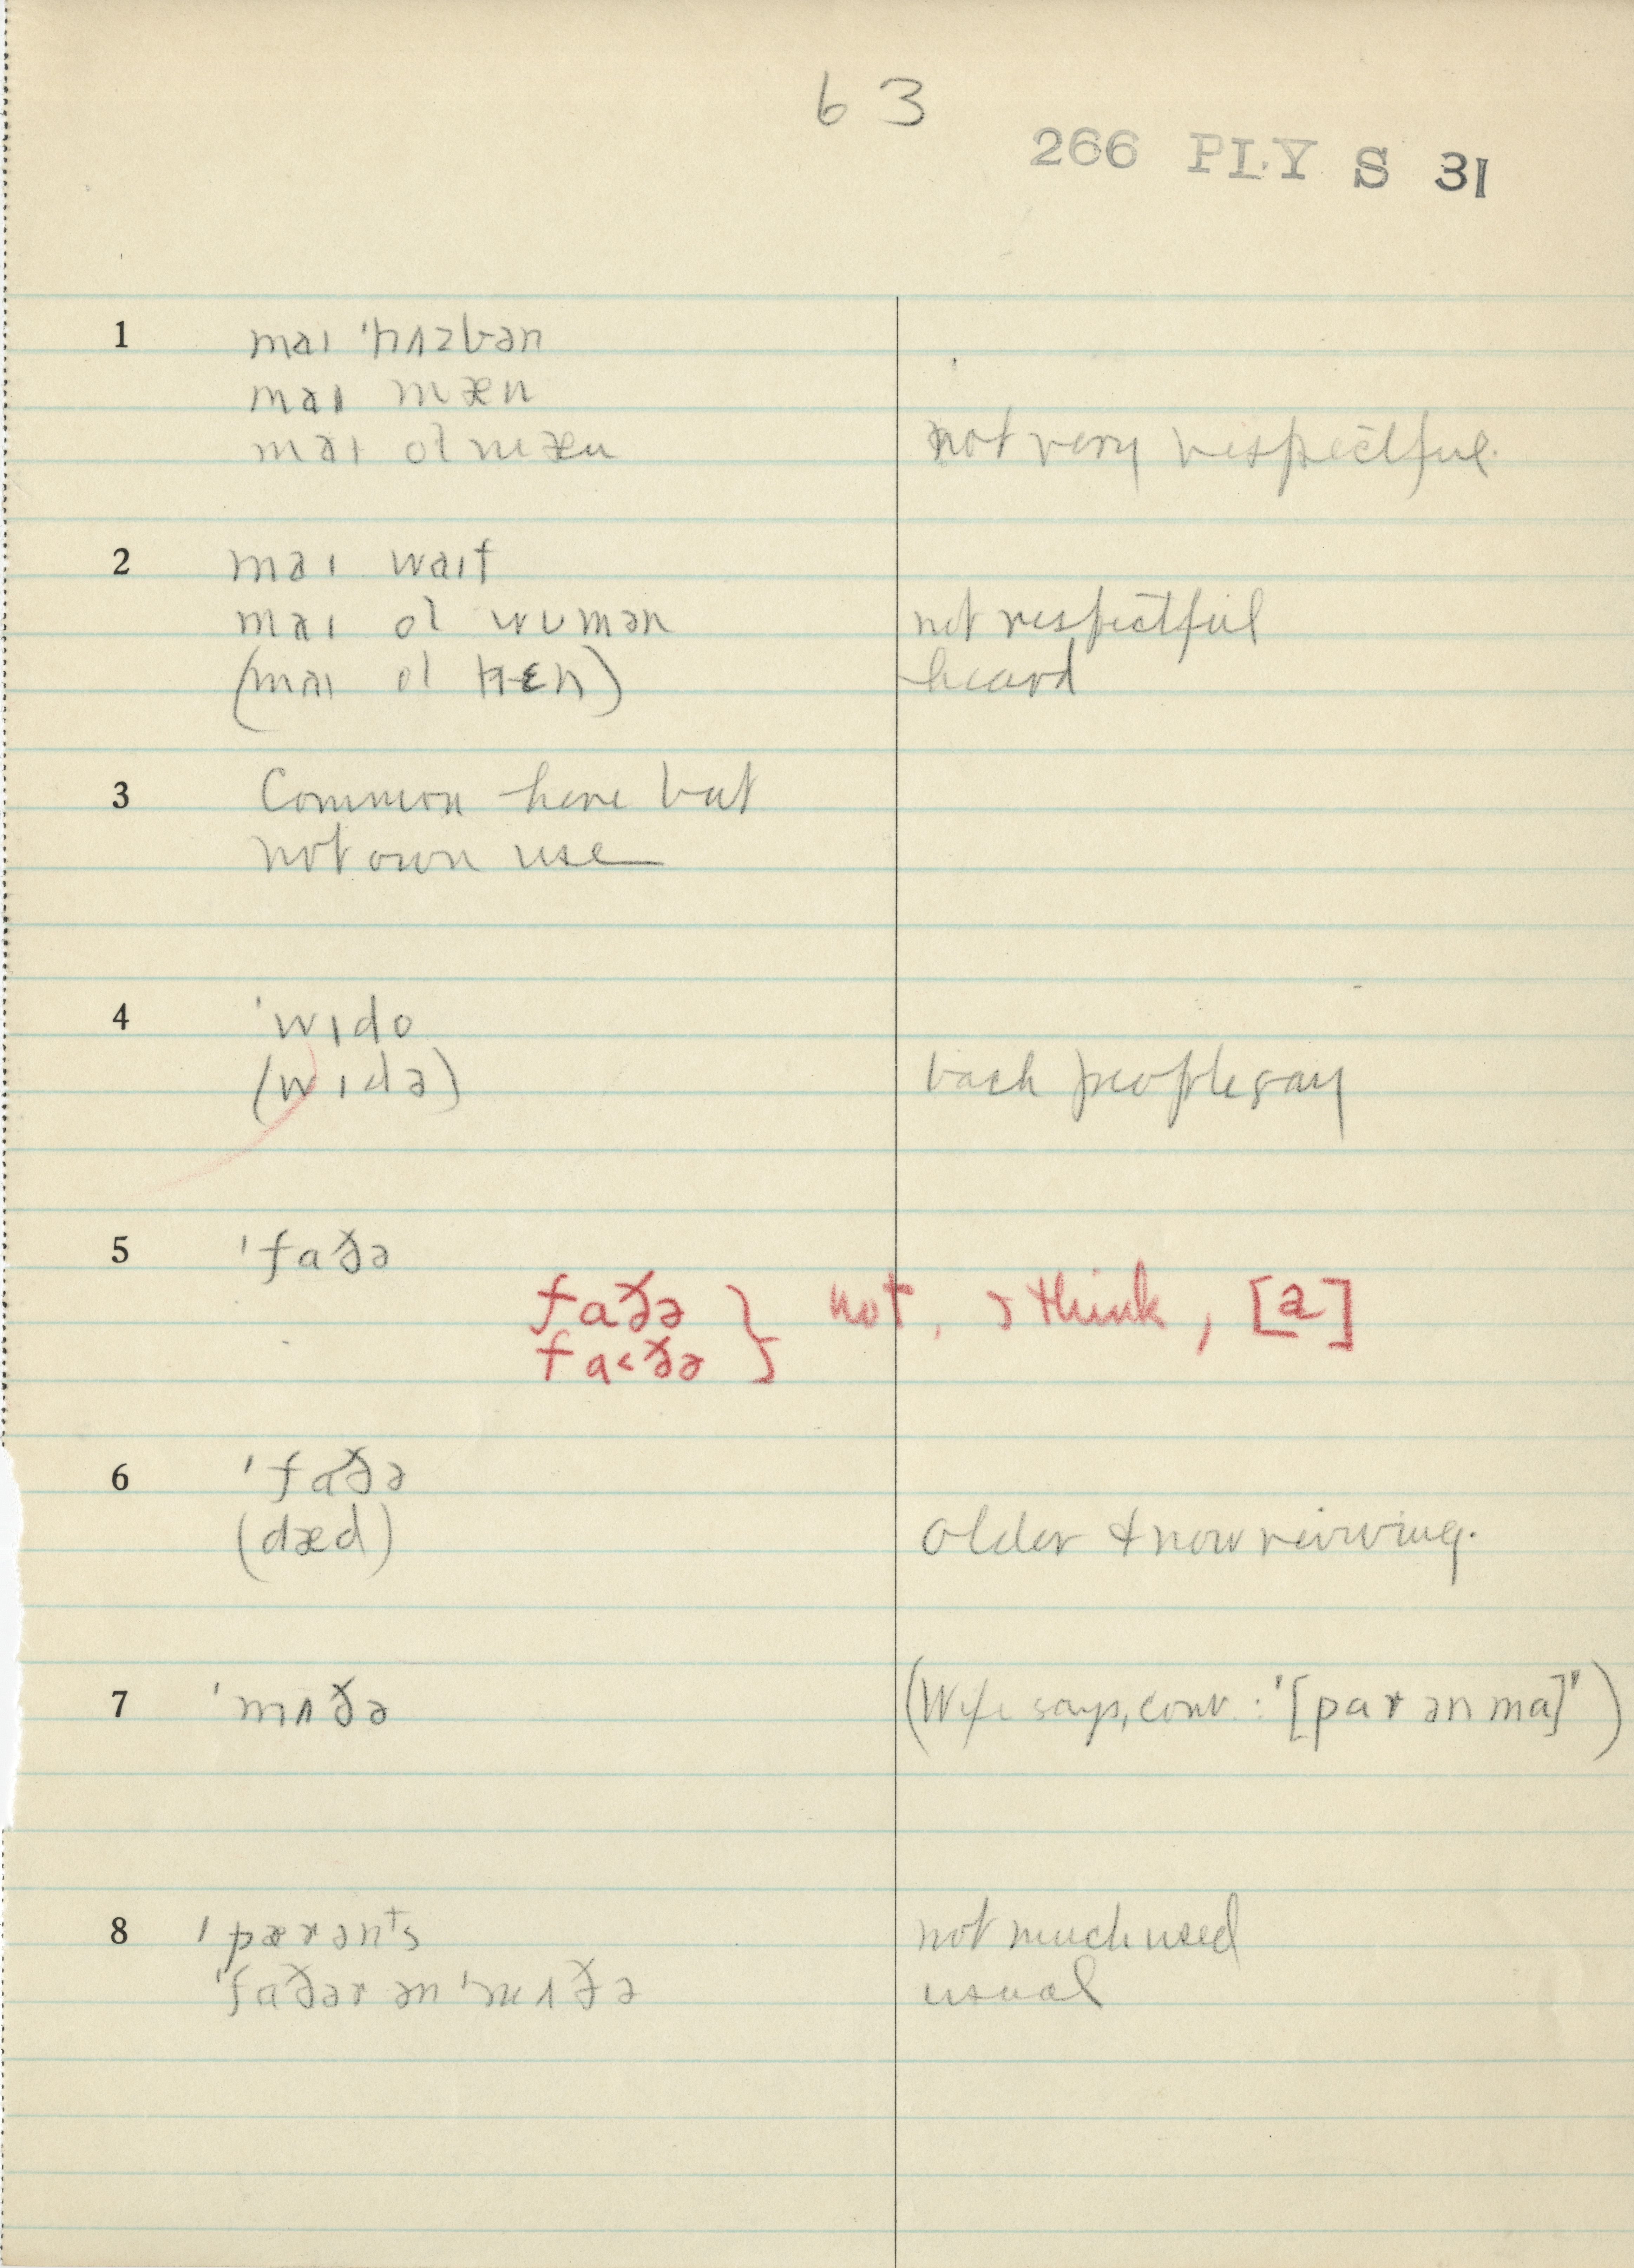 63
266 PLY S 31
1 maɪ ˈhʌzbən
maɪ mæn
maɪ ol mæn not very respectful.
2 maɪ waɪf
maɪ ol wʊmən not respectful
(maɪ ol hɛn) heard
3 Common here but
not own use
4 ˈwɪdo
(wɪdə) back people say
5 ˈfaðə
faðə } not, I think, [a]
fa<ðə
6 ˈfaðə
(dæd) older & now reviving.
7 ˈmʌðə (Wife says, conv.: '[par ən ma]')
8 ˈpærənᵗs not much used
ˈfaðər ən ˈmʌðə usual